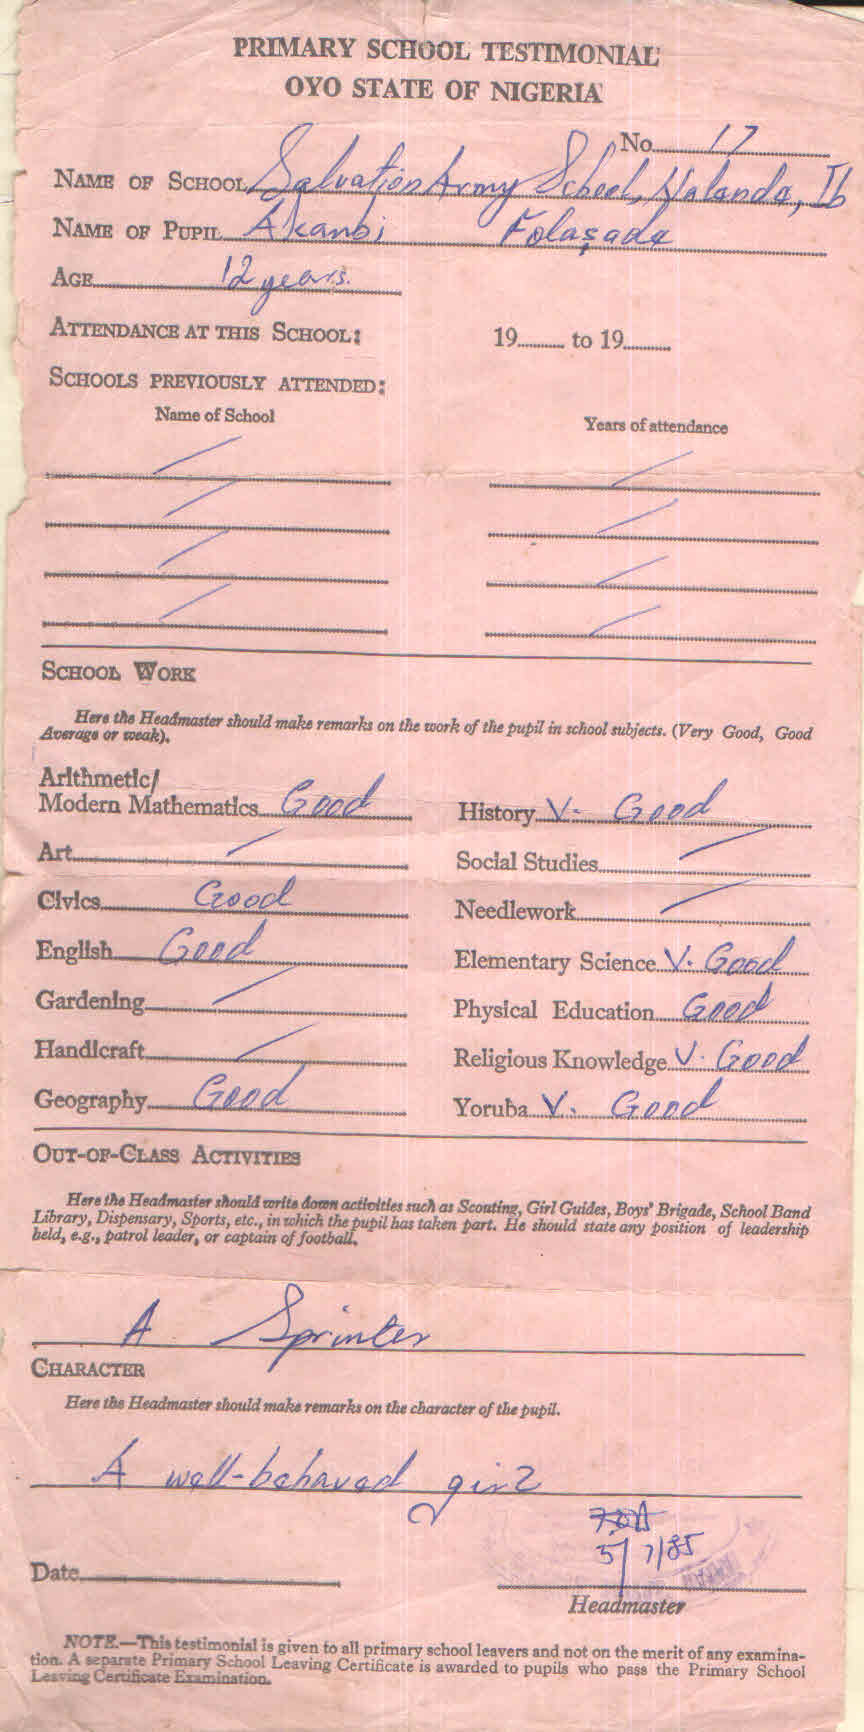 PRIMARY SCHOOL TESTIMONIAL
OYO STATE OF NIGERIA
No. 17
NAME OF SCHOOL Salvation Army School, Yalende, Ib
NAME OF PUPIL Akanbi Folaṣade
AGE 12 years.
ATTENDANCE AT THIS SCHOOL: 19 to 19
SCHOOLS PREVIOUSLY ATTENDED:
Name of School Years of attendance
SCHOOL WORK
Here the Headmaster should make remarks on the work of the pupil in school subjects. (Very Good, Good
Average or weak).
Arithmetic/
Modern Mathematics Good History V. Good
Art Social Studies
Civics Good Needlework
English Good Elementary Science V. Good
Gardening Physical Education Good
Handicraft Religious Knowledge V. Good
Geography Good Yoruba V. Good
OUT-OF-CLASS ACTIVITIES
Here the Headmaster should write down activities such as Scouting, Girl Guides, Boys' Brigade, School Band
Library, Dispensary, Sports, etc., in which the pupil has taken part. He should state any position of leadership
held, e.g., patrol leader, or captain of football.
A Sprinter
CHARACTER
Here the Headmaster should make remarks on the character of the pupil.
A well-behaved girl
5/7/85
Date
Headmaster
NOTE.—This testimonial is given to all primary school leavers and not on the merit of any examina-
tion. A separate Primary School Leaving Certificate is awarded to pupils who pass the Primary School
Leaving Certificate Examination.